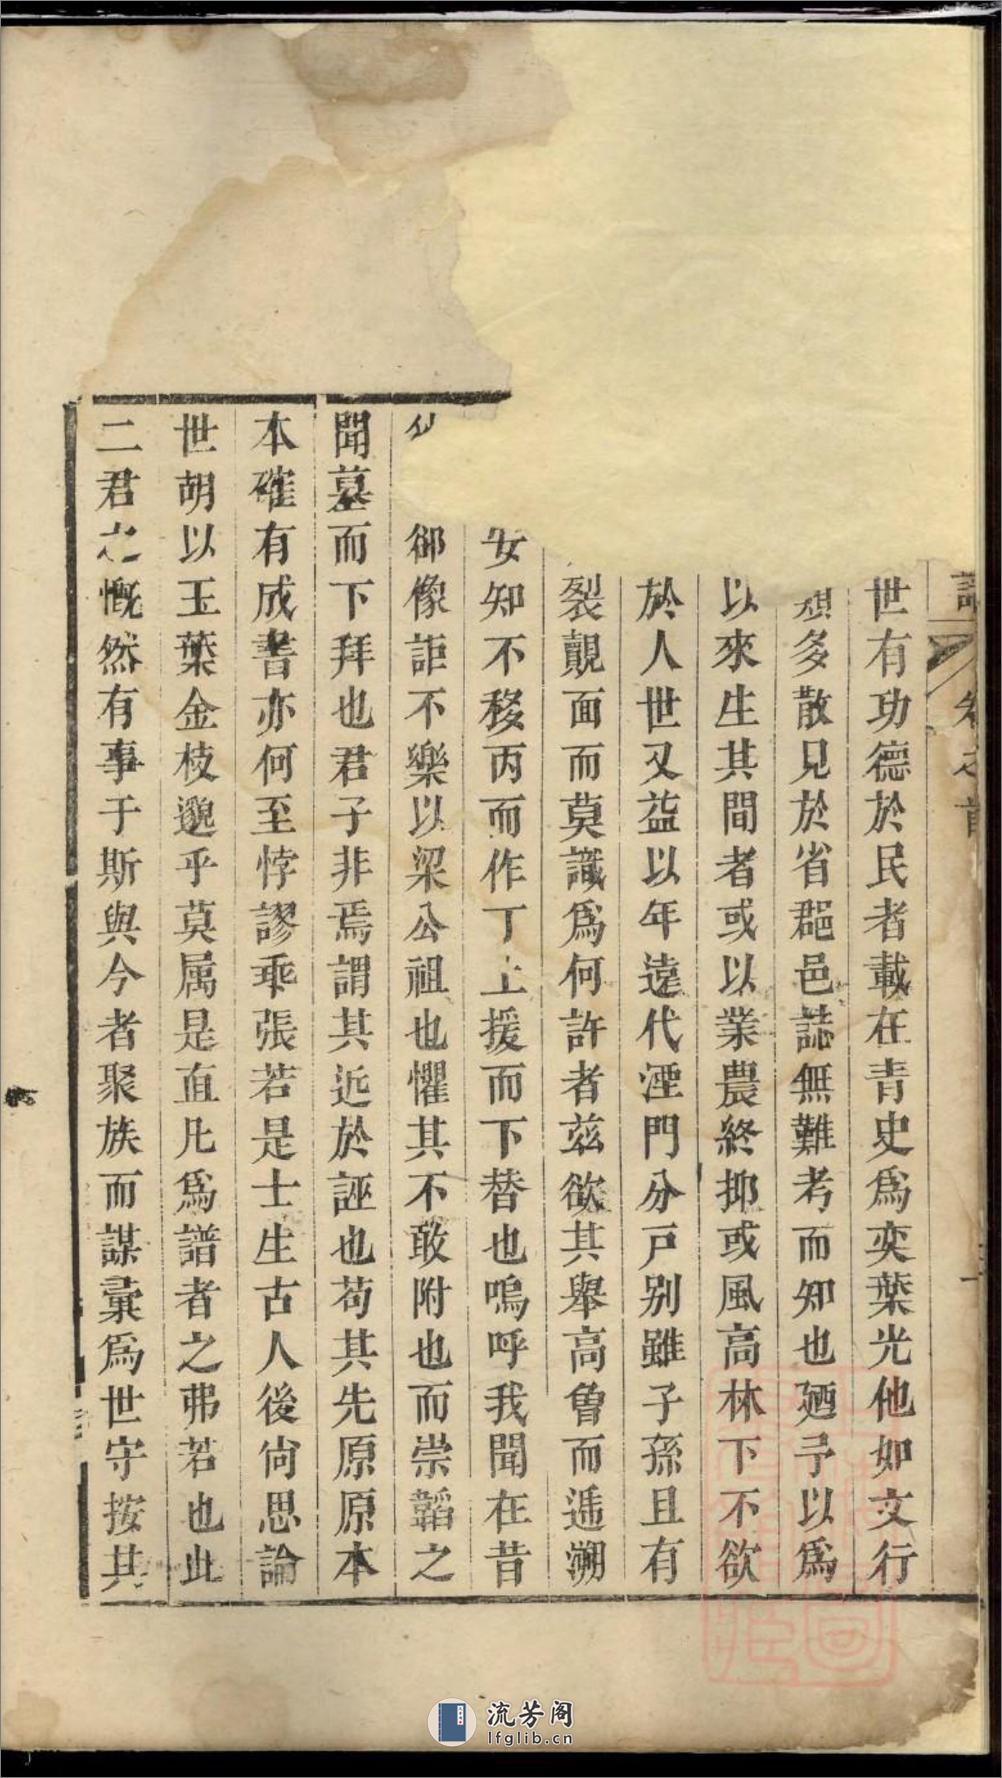 譜 卷之首
世有功德於民者載在青史爲奕葉光他如文行
類多散見於省郡邑誌無難考而知也廼予以爲
以來生其間者或以業農終抑或風高林下不欲
於人世又益以年遠代湮門分戸别雖子孫且有
裂覿面而莫識爲何許者兹欲其舉高曾而遥溯
安知不移丙而作丁上援而下替也嗚呼我聞在昔
郤像詎不樂以梁公祖也懼其不敢附也而崇韜之
聞墓而下拜也君子非焉謂其近於誣也苟其先原原本
本確有成書亦何至悖謬乖張若是士生古人後尙思論
世胡以玉葉金枝邈乎莫属是直凡爲譜者之弗若也此
二君之慨然有事于斯與今者聚族而謀彙爲世守按其
流芳阁
lfglib.cn